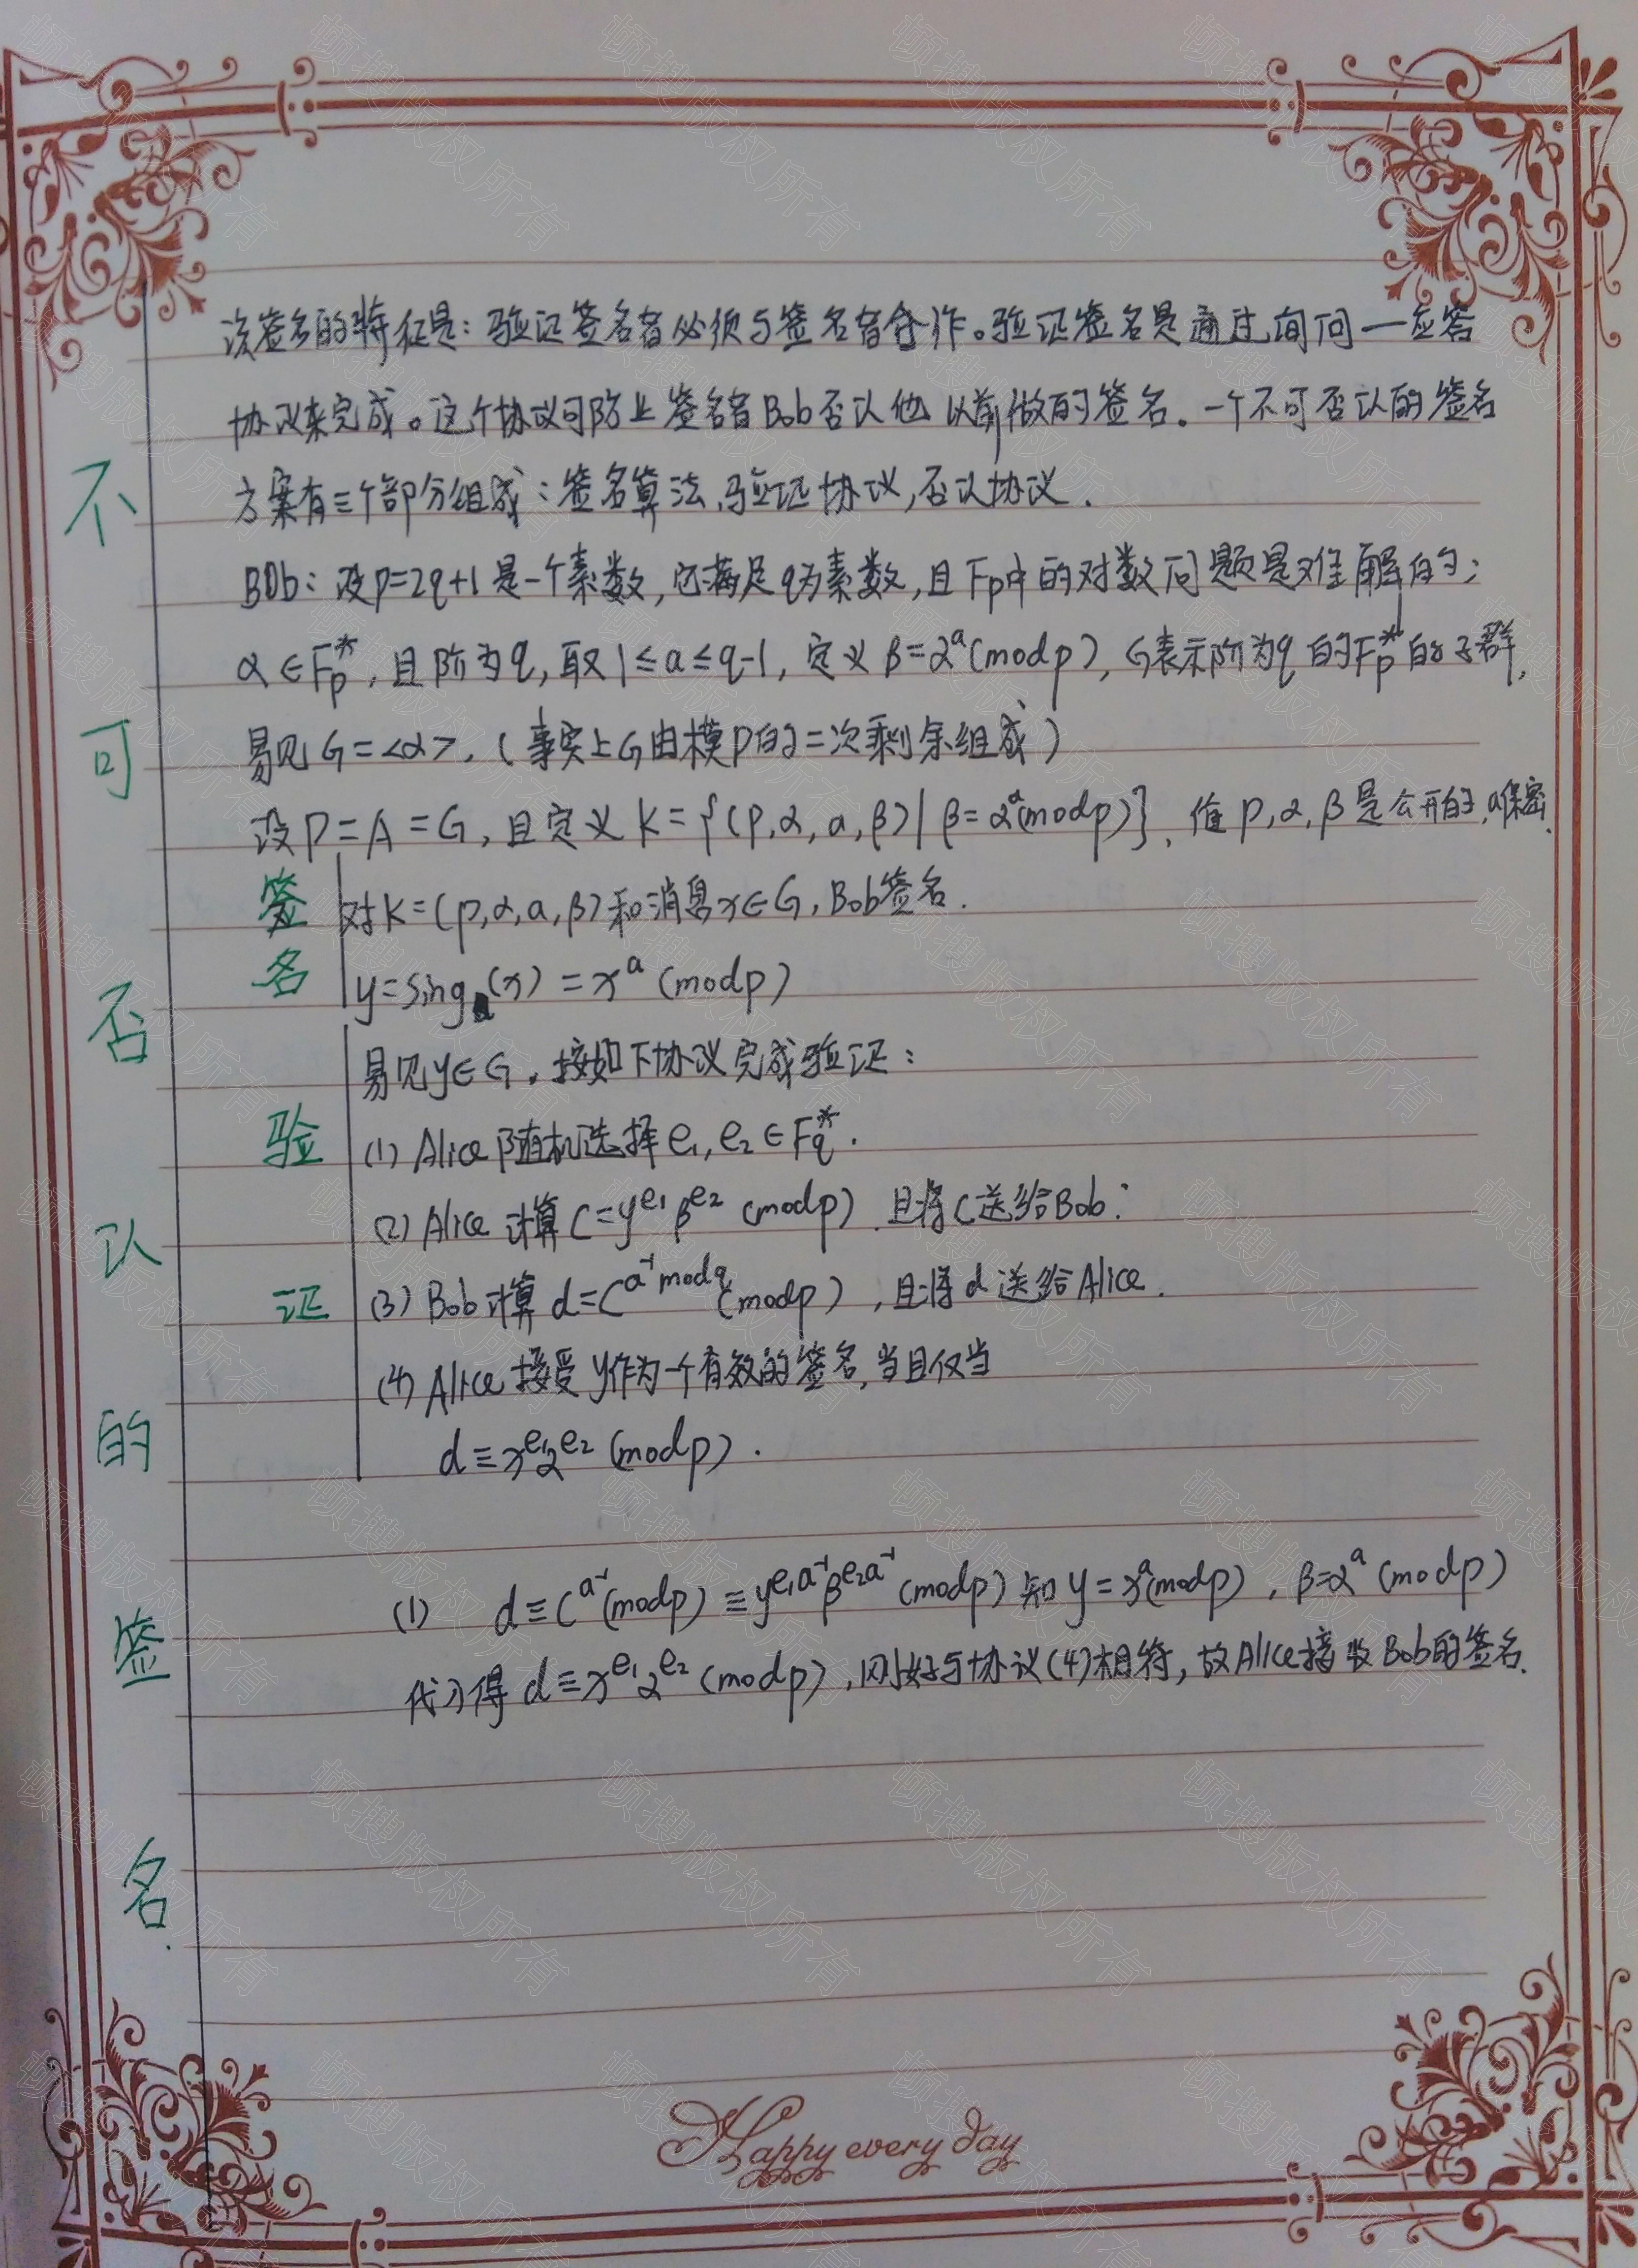 不可否认的签名
该签名的特征是：验证签名者必须与签名者合作。验证签名是通过询问一应答
协议来完成。这个协议可防止签名者Bob否认他以前做的签名．一个不可否认的签名
方案有三个部分组成：签名算法，验证协议，否认协议．
BOb：设p=2q+1是一个素数，它满足q为素数，且Fp中的对数问题是难解的；
α∈Fp*，且阶为q，取1≤a≤q-1，定义β=α^a(modp)，G表示阶为q的Fp*的子群，
易见G=<α>．（事实上G由模p的二次剩余组成）
设P=A=G，且定义K={(p,α,a,β)|β=α^a(modp)}，值p,α,β是公开的，a保密．
签名
对K=(p,α,a,β)和消息x∈G，Bob签名．
y=sing(x)=x^a (modp)
验证
易见y∈G．按如下协议完成验证：
(1) Alice随机选择e₁,e₂∈Fq*．
(2) Alice计算C=y^e₁ β^e₂ (modp)．且将C送给Bob：
(3) Bob计算d=C^(a⁻¹modq) (modp)，且将d送给Alice．
(4) Alice接受y作为一个有效的签名，当且仅当
d≡x^e₁ α^e₂ (modp)．
(1) d≡C^a⁻¹(modp)≡y^(e₁a⁻¹)β^(e₂a⁻¹) (modp) 知y=x^a(modp)，β=α^a (modp)
代入得 d≡x^e₁ α^e₂ (modp)，刚好与协议(4)相符，故Alice接收Bob的签名．
Happy every day
顿搜版权所有